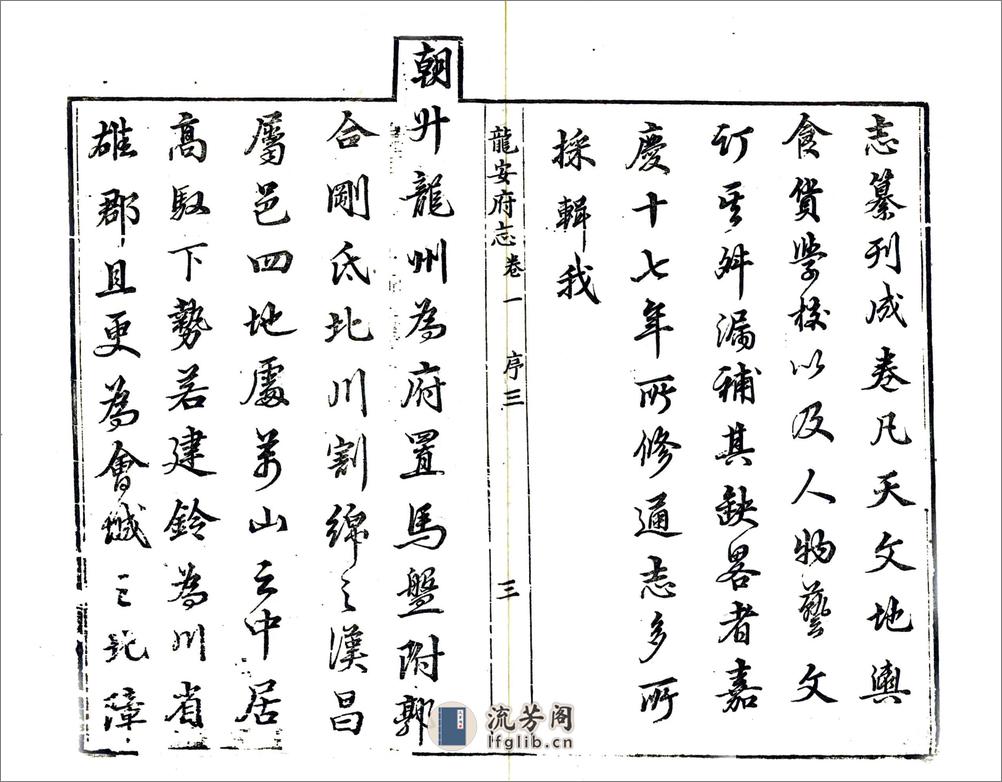 志纂刊成卷凡天文地輿
食貨學校以及人物藝文
訂其舛漏補其缺畧者嘉
慶十七年所修通志多所
採輯我
龍安府志 卷一 序三 三
朝升龍州為府置馬盤附郭
合剛氐北川割綿之漢昌
屬邑四地處萬山之中居
高馭下勢若建鈴為川省
雄郡且更為會城之障
流芳阁
lfglib.cn